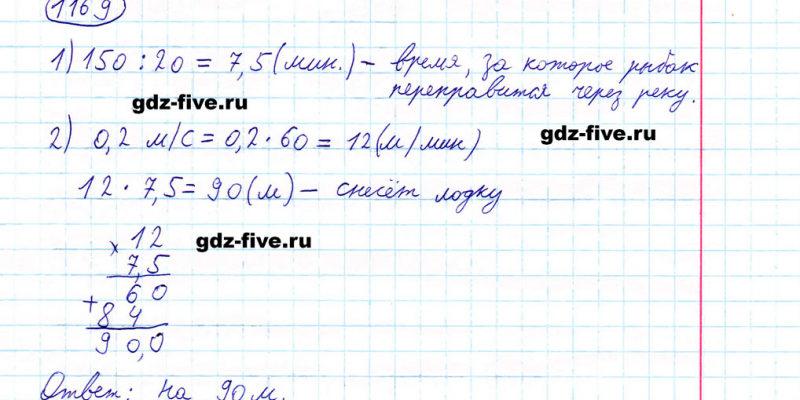 1169
1) 150 : 20 = 7,5 (мин.) – время, за которое рыбак
переправится через реку.
gdz-five.ru
2) 0,2 м/с = 0,2 · 60 = 12 (м/мин)
gdz-five.ru
12 · 7,5 = 90 (м) – снесёт лодку
gdz-five.ru
× 12
7,5
60
+ 84
90,0
Ответ: на 90 м.